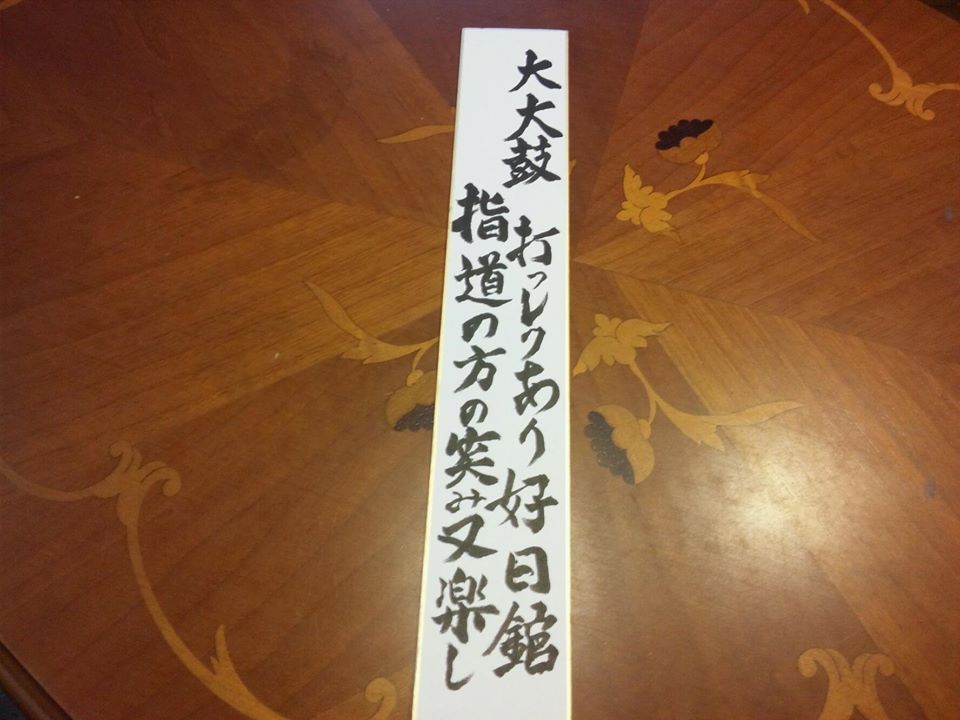 大大鼓 打っしりあり好日館
指道の方の笑み又楽し